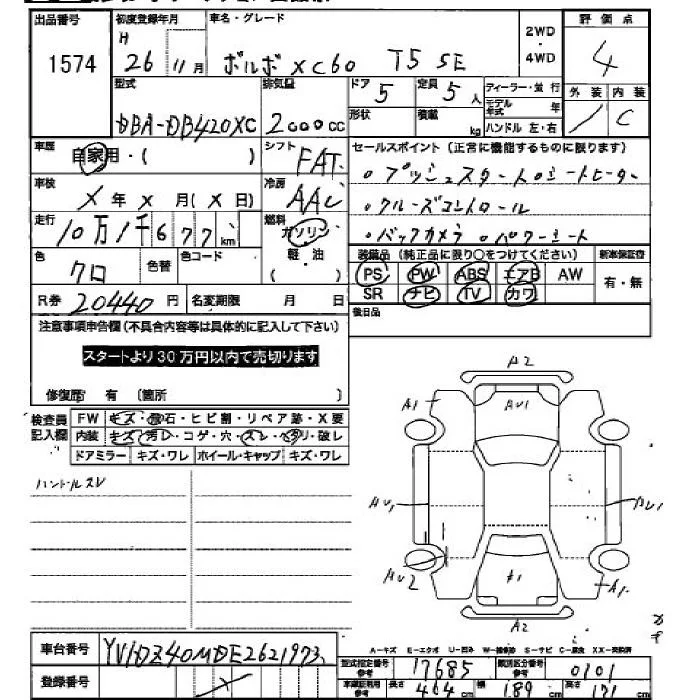 出品番号 初度登録年月 車名・グレード 2WD・4WD 評価点
1574 H 26 11月 ボルボ XC60 T5 SE 4
型式 排気量 ドア 定員 ディーラー・並行 外装 内装
DBA-DB420XC 2000cc 5 5人 モデル年式 年 C
形状 積載 kg ハンドル 左・右
車歴 自家用・( ) シフト FAT セールスポイント (正常に機能するものに限ります)
車検 X年X月(X日) 冷房 AAC ・プッシュスタート ・シートヒーター
・クルーズコントロール
走行 10万1千677km 燃料 ガソリン 軽・油 ( ) ・バックカメラ ・パワーシート
色 クロ 色替 色コード 装備品 (純正品に限り〇をつけてください) 新車保証書
PS PW ABS エアB AW 有・無
R券 20440円 名変期限 月 日 SR ナビ TV カワ
後日品
注意事項申告欄(不具合内容等は具体的に記入して下さい)
スタートより30万円以内で売切ります
修復歴 有 〔箇所 〕
検査員記入欄 FW キズ・飛石・ヒビ割・リペア跡・X要
内装 キズ・汚レ・コゲ・穴・スレ・ヘタリ・破レ
ドアミラー キズ・ワレ ホイール・キャップ キズ・ワレ
ハンドルスレ
A2
A1 AU1
AU1 AU1
AU2 A1 A1
A2
A-キズ E-エクボ U-凹み W-補修跡 S-サビ C-腐食 XX-交換済
車台番号 YV1DZ40MDE2621973
登録番号 X
型式指定番号 参考 17685 類別区分番号 参考 0101
車庫証明用 参考 長さ 464cm 幅 189cm 高さ 171cm